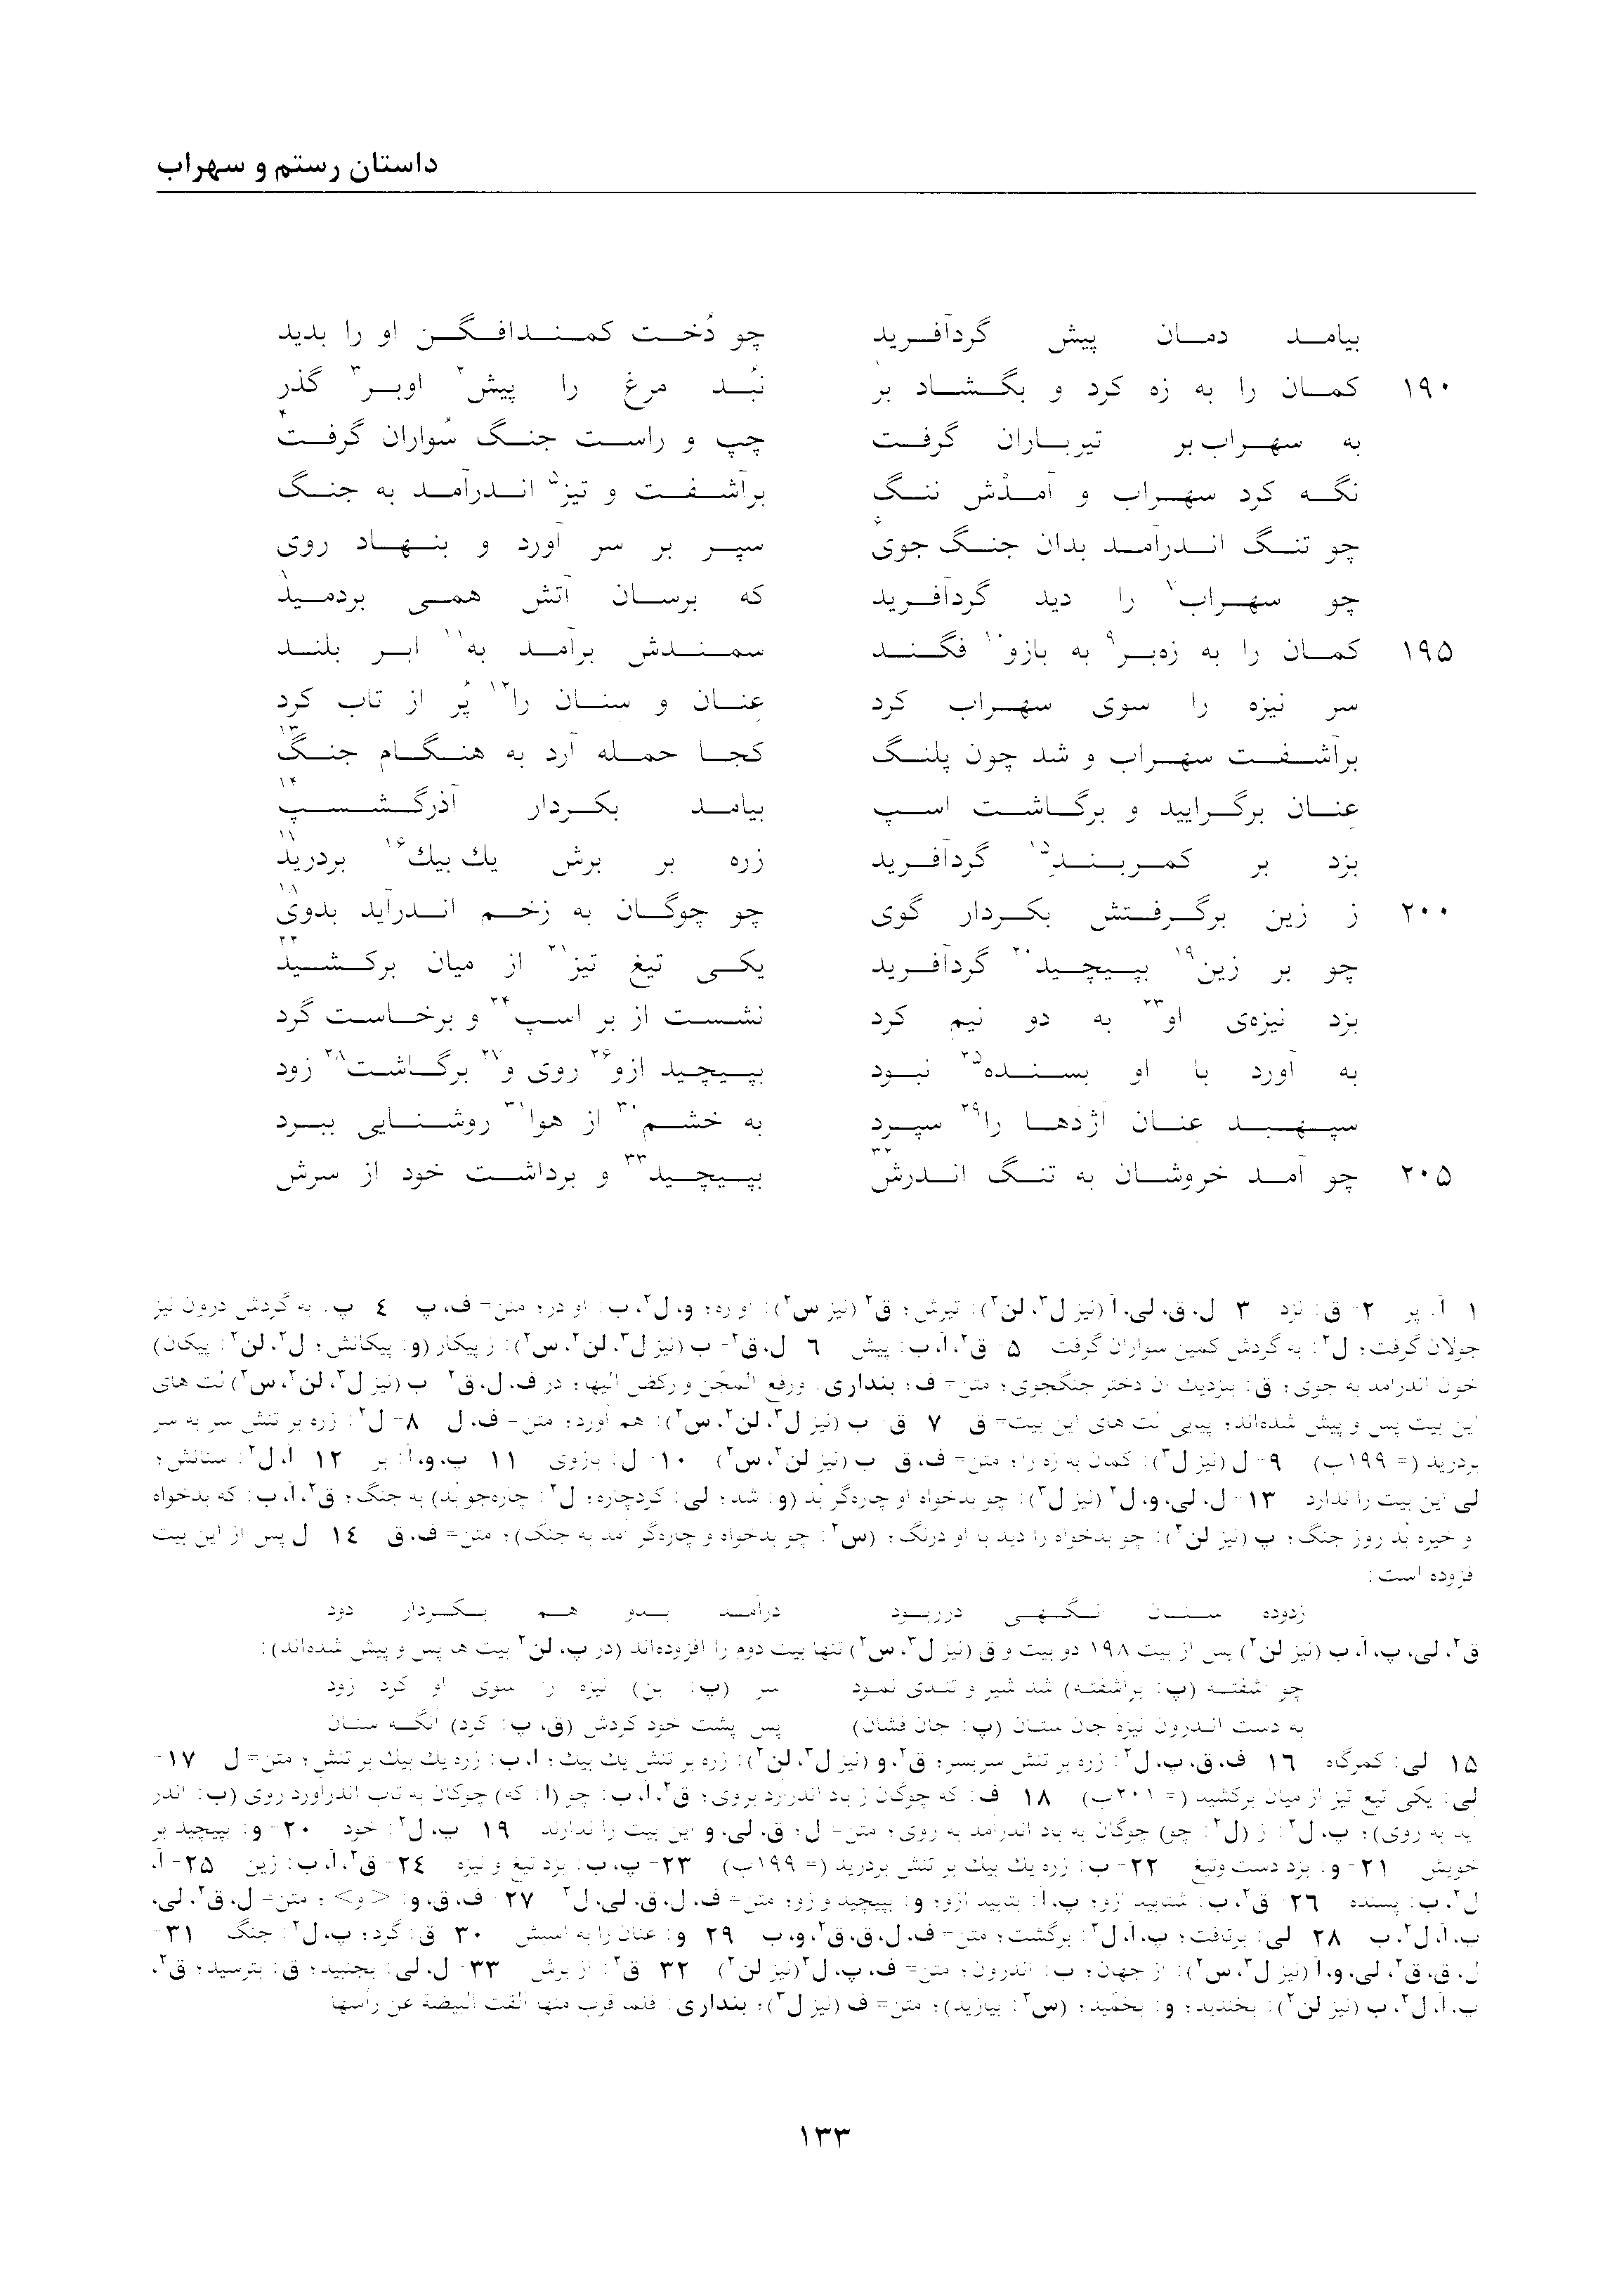 داستان رستم و سهراب
بیامد دمان پیش گردآفرید چو دُخت کمندافگن او را بدید
۱۹۰ کمان را به زه کرد و بگشاد بر۱ نبُد مرغ را پیش۲ اوبر۳ گذر
به سهراب‌بر تیرباران گرفت چپ و راست جنگ سُواران گرفت۴
نگه کرد سهراب و آمَدْش ننگ برآشفت و تیز۵ اندرآمد به جنگ
چو تنگ اندرآمد بدان جنگ‌جوی۶ سپر بر سر آورد و بنهاد روی
چو سهراب۷ را دید گردآفرید که برسان آتش همی بردمید۸
۱۹۵ کمان را به زه‌بر۹ به بازو۱۰ فگند سمندش برآمد به۱۱ ابر بلند
سر نیزه را سوی سهراب کرد عنان و سنان را۱۲ پُر از تاب کرد
برآشفت سهراب و شد چون پلنگ کجا حمله آرد به هنگام جنگ۱۳
عنان برگرایید و برگاشت اسپ بیامد بکردار آذرگشسپ۱۴
بزد بر کمربندِ۱۵ گردآفرید زره بر برش یك بیك۱۶ بردرید۱۷
۲۰۰ ز زین برگرفتش بکردار گوی چو چوگان به زخم اندرآید بدوی۱۸
چو بر زین۱۹ بپیچید۲۰ گردآفرید یکی تیغ تیز۲۱ از میان برکشید۲۲
بزد نیزه‌ی او۲۳ به دو نیم کرد نشست از بر اسپ۲۴ و برخاست گرد
به آورد با او بسنده۲۵ نبود بپیچید ازو۲۶ روی و۲۷ برگاشت۲۸ زود
سپهبد عنان اژدها را۲۹ سپرد به خشم۳۰ از هوا۳۱ روشنایی ببرد
۲۰۵ چو آمد خروشان به تنگ اندرش۳۲ بپیچید۳۳ و برداشت خود از سرش
۱ آ. پر ۲- ق: نزد ۳ ل، ق، لی، آ (نیز ل۳، لن۲): تیرش؛ ق۲ (نیز س۲): او ره؛ و، ل۲، ب: او در؛ متن= ف، پ ٤ پ. به گردش درون نیز
جولان گرفت؛ ل۲: به گردش کمین سواران گرفت ۵- ق۲، آ، ب: پیش ٦ ل، ق۲- ب (نیز ل۳، لن۲، س۲): ز پیکار (و: پیکانش؛ ل۲، لن۲: پیکان)
خون اندرآمد به جوی؛ ق: بنزدیك آن دختر جنگجوی؛ متن= ف؛ بنداری: ورفع المجن و رکض الیها؛ در ف، ل، ق۲ ب (نیز ل۳، لن۲، س۲) لت های
این بیت پس و پیش شده‌اند؛ پیاپی لت های این بیت= ق ۷ ق- ب (نیز ل۳، لن۲، س۲): هم آورد؛ متن- ف، ل ۸- ل۲: زره بر تنش سر به سر
بردرید (= ۱۹۹ب) ۹- ل (نیز ل۳): کمان به زه را؛ متن= ف، ق ب (نیز لن۲، س۲) ۱۰- ل: بازوی ۱۱ پ، و، آ: بر ۱۲ آ، ل۲: سنانش؛
لی این بیت را ندارد ۱۳- ل، لی، و، ل۲ (نیز ل۳): چو بدخواه او چاره‌گر بُد (و: شد؛ لی: کردچاره؛ ل۲: چاره‌جو بد) به جنگ؛ ق۲، آ، ب: که بدخواه
و خیره بُد روز جنگ؛ پ (نیز لن۲): چو بدخواه را دید با او درنگ؛ (س۲: چو بدخواه و چاره‌گر آمد به جنگ)؛ متن= ف، ق ۱٤ ل پس از این بیت
فزوده است:
زدوده سنان آنگهی درربود درآمد بدو هم بکردار دود
ق۲، لی، پ، آ، ب (نیز لن۲) پس از بیت ۱۹۸ دو بیت و ق (نیز ل۳، س۲) تنها بیت دوم را افزوده‌اند (در پ، لن۲ بیت ها پس و پیش شده‌اند):
چو آشفته (پ: برآشفته) شد شیر و تندی نمود سر (پ: بن) نیزه را سوی او کرد زود
به دست اندرون نیزه جان ستان (پ: جان فشان) پس پشت خود کردش (ق، پ: کرد) آنگه سنان
۱۵ لی: کمرگاه ۱٦ ف، ق، پ، ل۲: زره بر تنش سربسر؛ ق۲، و (نیز ل۳، لن۲): زره بر تنش یك بیك؛ آ، ب: زره یك بیك بر تنش؛ متن= ل ۱۷-
لی: یکی تیغ تیز از میان برکشید (= ۲۰۱ب) ۱۸ ف: که چوگان ز باد اندرآرد بروی؛ ق۲، آ، ب: چو (آ: که) چوگان به تاب اندرآورد روی (ب: اندر
آید به روی)؛ پ، ل۲: ز (ل۲: چو) چوگان به باد اندرآمد به روی؛ متن- ل؛ ق، لی، و این بیت را ندارند ۱۹ پ، ل۲: خود ۲۰- و: بپیچید بر
خویش ۲۱- و: بزد دست وتیغ ۲۲- ب: زره یك بیك بر تنش بردرید (= ۱۹۹ب) ۲۳- پ، ب: بزد تیغ و نیزه ۲٤- ق۲، آ، ب: زین ۲۵- آ،
ل۲، ب: پسنده ۲٦- ق۲، ب: بتابید ازو؛ و: بپیچید و زو؛ متن= ف، ل، ق، لی، ل۲ ۲۷- ف، ق، و: <و>؛ متن= ل، ق۲، لی،
پ، آ، ل۲، ب ۲۸ لی: برتافت؛ پ، آ، ل۲: برگشت؛ متن= ف، ل، ق، ق۲، و، ب ۲۹ و: عنان را به اسبش ۳۰ ق: گرد؛ پ، ل۲: جنگ ۳۱-
ل، ق، ق۲، لی، و، آ (نیز ل۳، س۲): از جهان؛ ب: اندرون؛ متن= ف، پ، ل۲ (نیز لن۲) ۳۲ ق۲: از برش ۳۳- ل، لی: بجنبید؛ ق: بترسید؛ ق۲،
پ، آ، ل۲، ب (نیز لن۲): بخندید؛ و: بخمید؛ (س۲: بیازید)؛ متن= ف (نیز ل۳)؛ بنداری: فلما قرب منها ألقت البیضة عن رأسها
۱۳۳